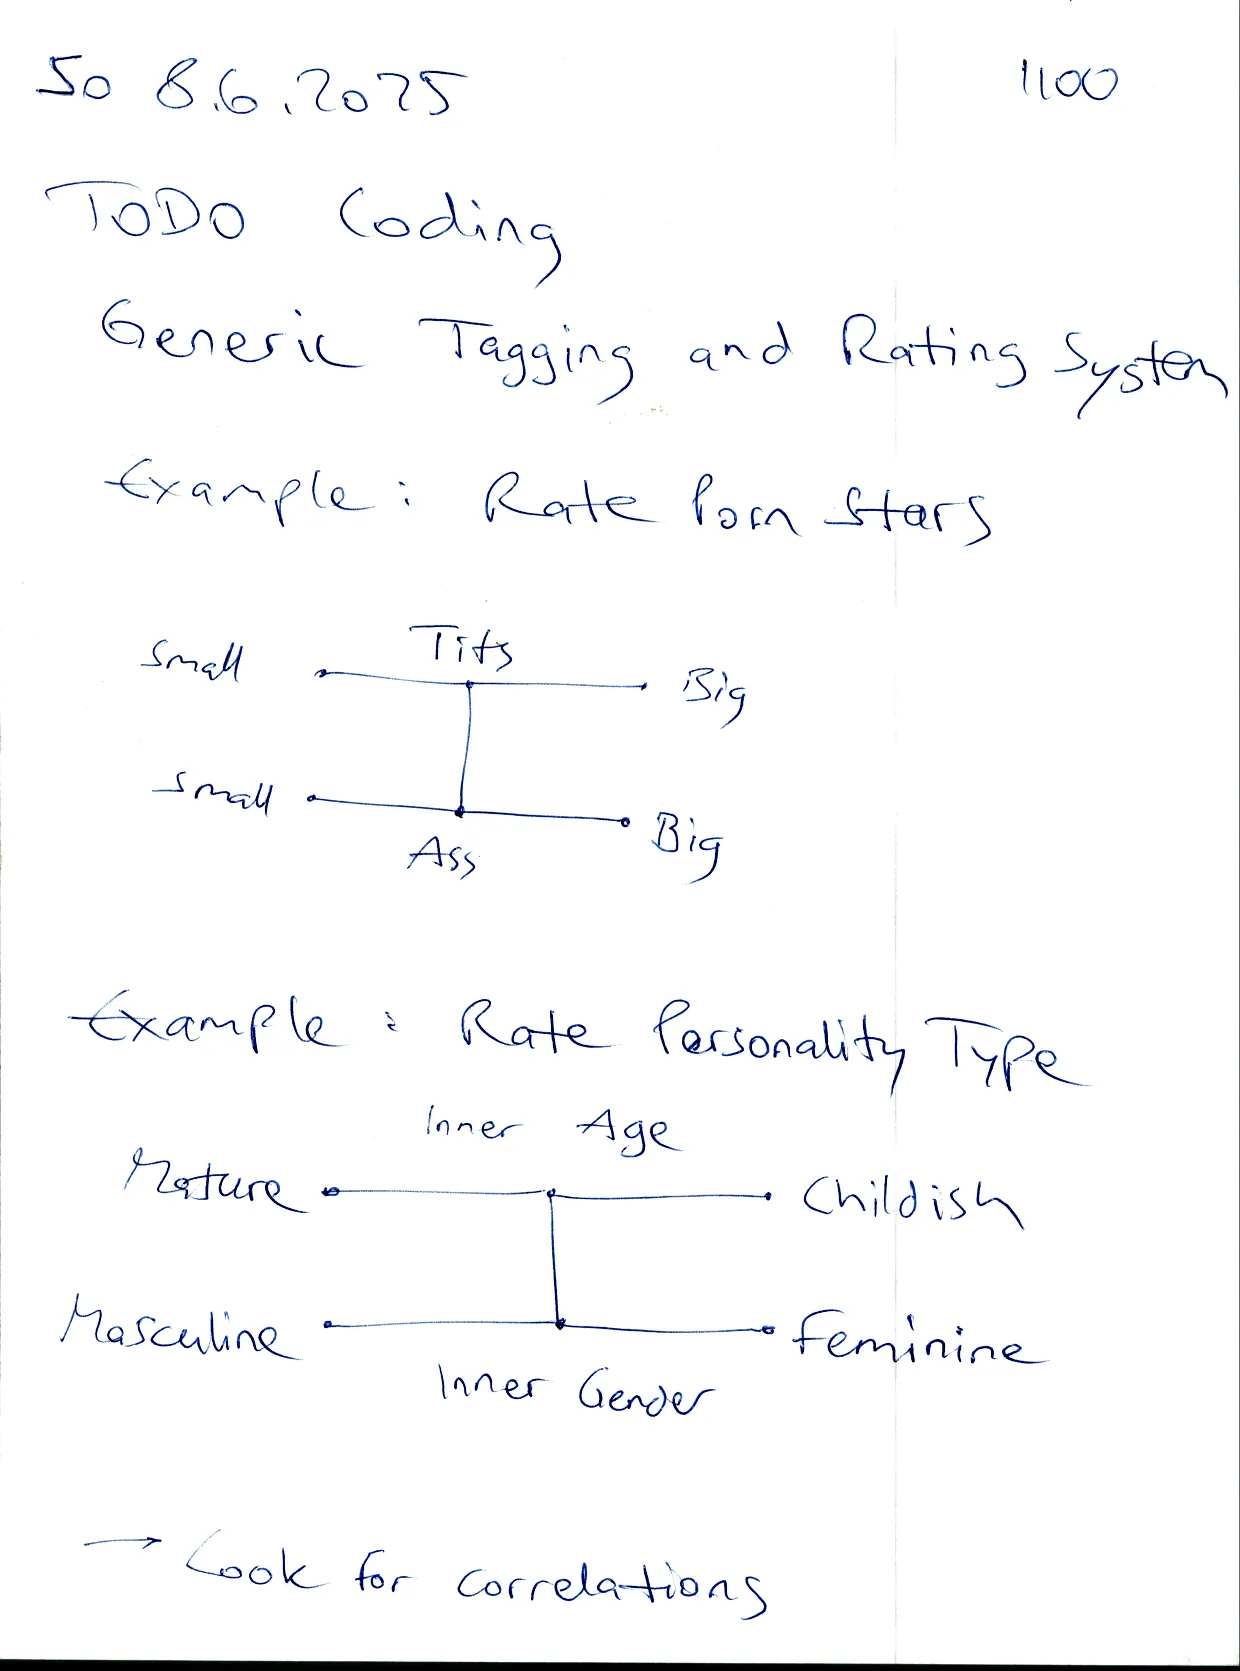 So 8.6.2025 1100
TODO Coding
Generic Tagging and Rating System
Example: Rate Porn Stars
Tits
Small Big
Small Big
Ass
Example: Rate Personality Type
Inner Age
Mature Childish
Masculine Feminine
Inner Gender
→ Look for correlations